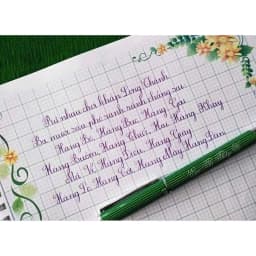 Rủ nhau chơi khắp Long Thành
Ba mươi sáu phố rành rành chẳng sai
Hàng Bồ, Hàng Bạc, Hàng Gai
Hàng Buồm, Hàng Thiếc, Hài, Hàng Khay
Mã Vĩ, Hàng Điếu, Hàng Giày
Hàng Lờ, Hàng Cót, Hàng Mây, Hàng Đàn